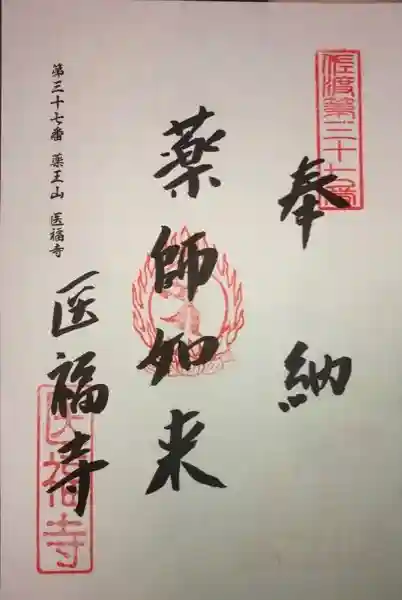 佐渡第三十七番
奉納
薬師如来
医福寺
医福寺
第三十七番 薬王山 医福寺